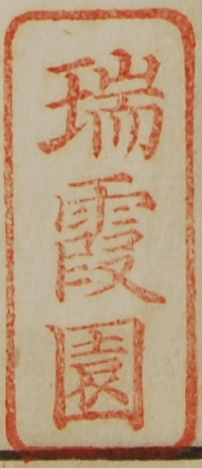 瑞霞園